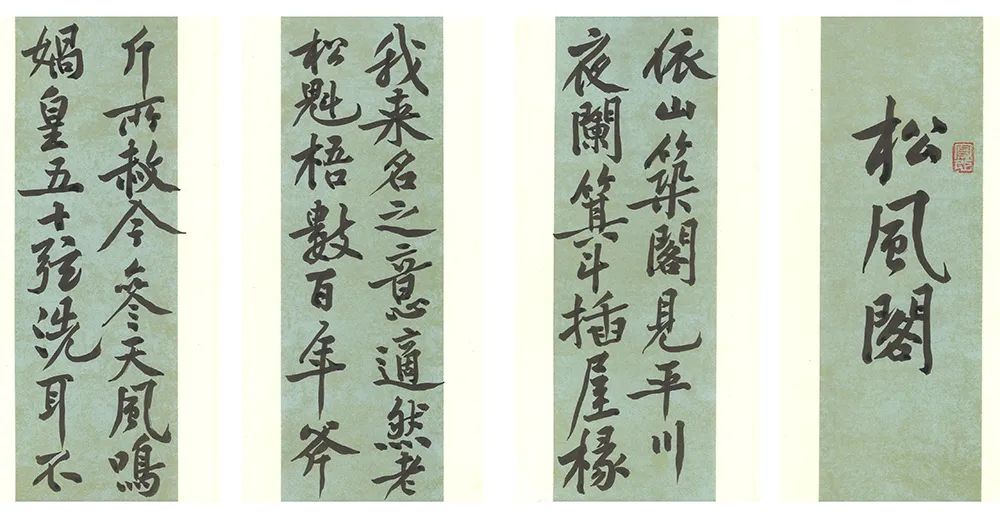 松風閣
依山築閣見平川
夜闌箕斗插屋椽
我来名之意適然老
松魁梧數百年斧
斤所赦今參天風鳴
媧皇五十弦洗耳不